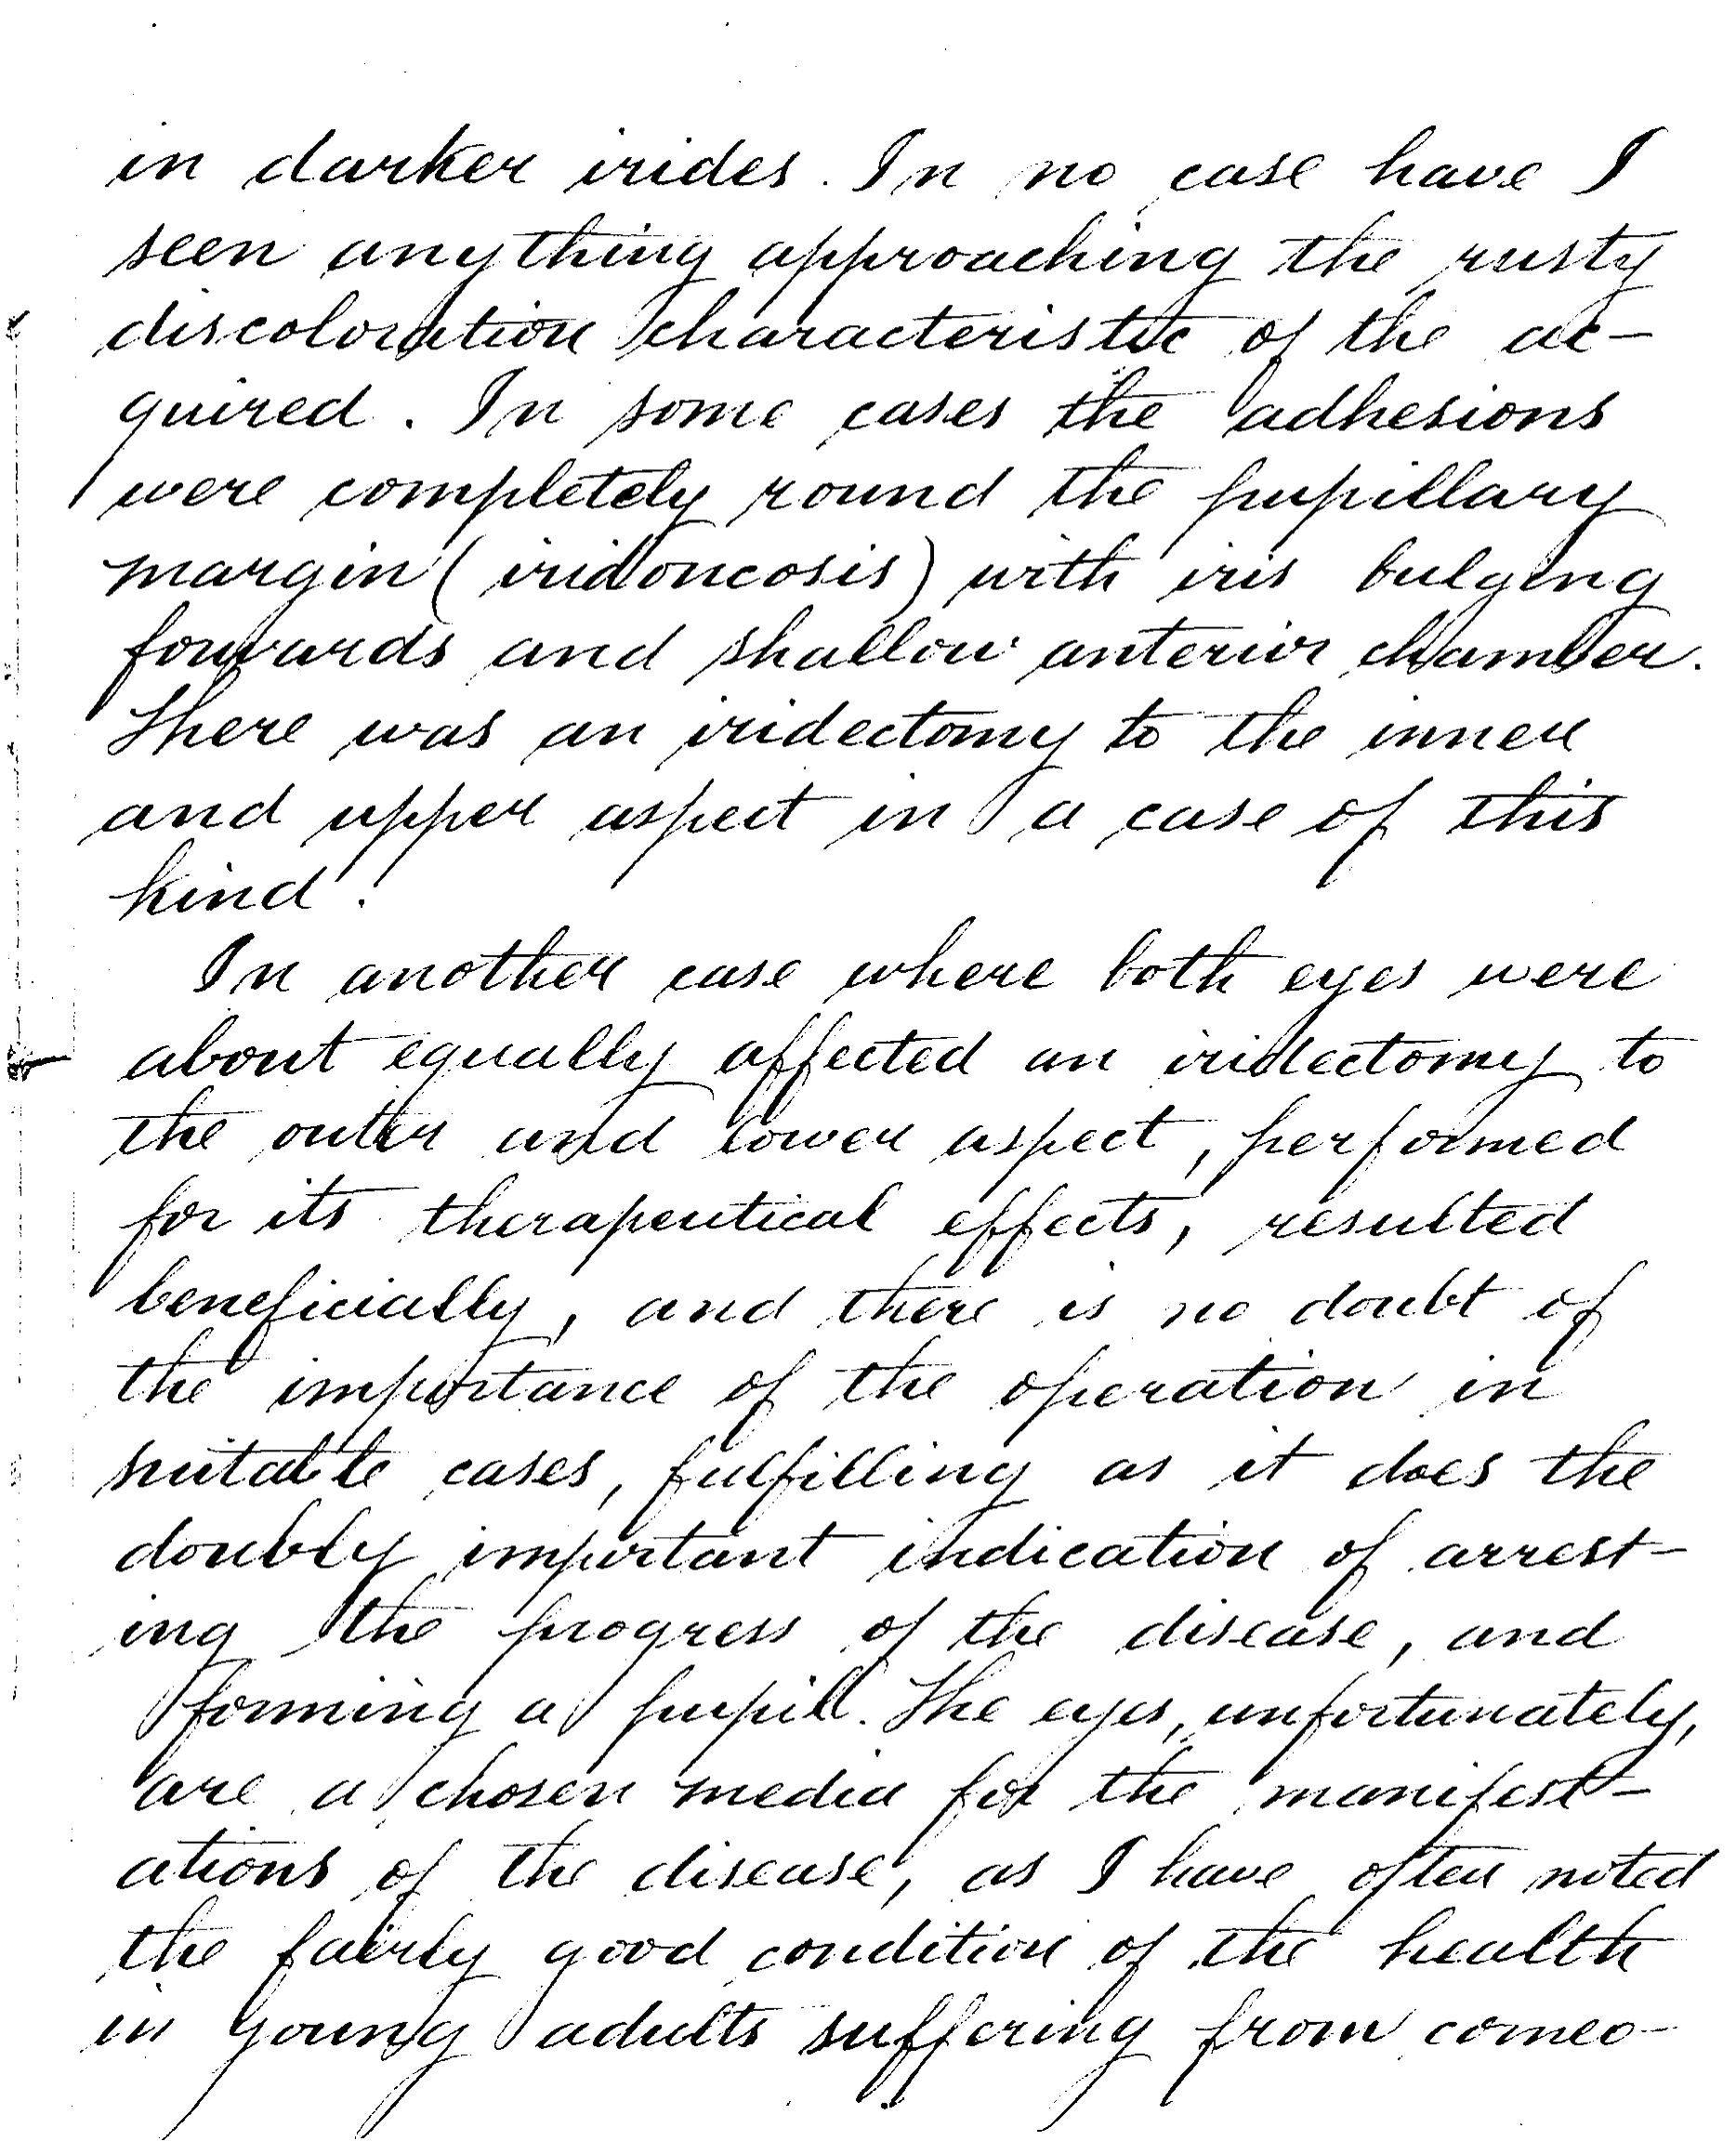 in darker irides. In no case have I
seen anything approaching the rusty
discoloration characteristic of the ac-
quired. In some cases the adhesions
were completely round the pupillary
margin (iridoncosis) with iris bulging
forwards and shallow anterior chamber.
There was an iridectomy to the inner
and upper aspect in a case of this
kind.
In another case where both eyes were
about equally affected an iridectomy to
the outer and lower aspect, performed
for its therapeutical effects, resulted
beneficially, and there is no doubt of
the importance of the operation in
suitable cases, fulfilling as it does the
doubly important indication of arrest-
ing the progress of the disease, and
forming a pupil. The eyes, unfortunately,
are a chosen media for the manifest-
ations of the disease, as I have often noted
the fairly good condition of the health
in young adults suffering from corneo-